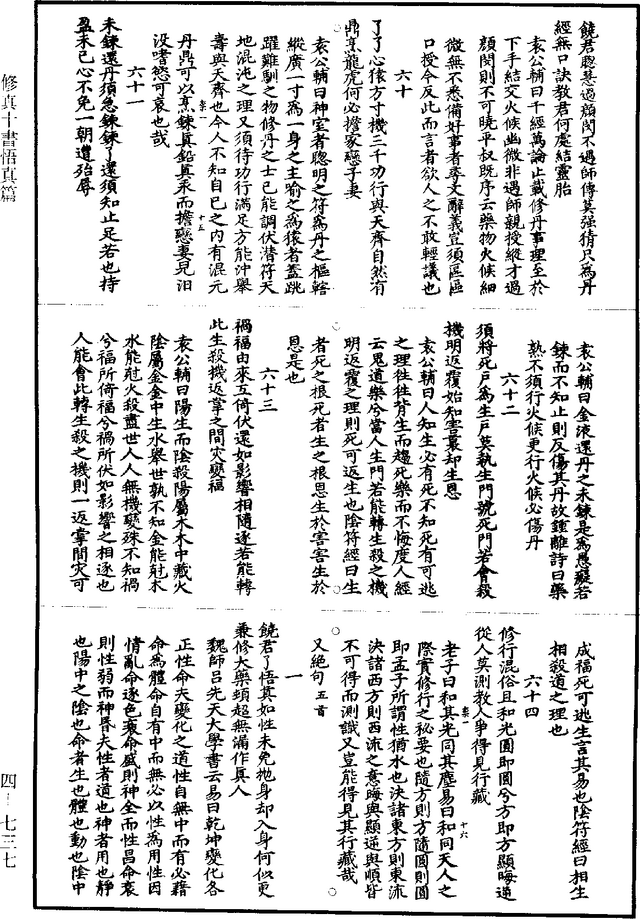 饒君聰慧過顏閔不遇師傳莫強猜只為丹
經無口訣教君何處結靈胎
袁公輔曰千經萬論止載修丹事理至於
下手結交火候幽微非遇師親授縱才過
顏閔則不可曉平叔既序云藥物火候細
微無不悉備好事者尋文解義豈須區區
口授今反此而言者欲人之不敢輕議也
六十
了了心猿方寸機三千功行與天齊自然有
鼎烹龍虎何必擔家戀子妻
袁公輔曰神室者聰明之符為丹之樞轄
縱廣一寸為一身之主喻之為猿者蓋跳
躍難馴之物修丹之士已能調伏潛符天
地混沌之理又須待功行滿足方能沖舉
壽與天齊也今人不知自己之內有混元
丹鼎可以烹鍊真鉛真汞而擔戀妻兒汩
没嗜慾可哀也哉
六十一
未鍊還丹須急鍊鍊了還須知止足若也持
盈未已心不免一朝遭殆辱
袁公輔曰金液還丹之未鍊是為愚癡若
鍊而不知止則反傷其丹故鍾離詩曰藥
熟不須行火候更行火候必傷丹
六十二
須將死户為生户莫執生門號死門若會殺
機明返覆始知害裏却生恩
袁公輔曰人知生必有死不知死有可逃
之理往往背生而趨死樂而不悔度人經
云鬼道樂兮當人生門若能轉生殺之機
明返覆之理則死可返生也陰符經曰生
者死之根死者生之根恩生於害害生於
恩是也
六十三
禍福由來互倚伏還如影響相隨逐若能轉
此生殺機返掌之間災變福
袁公輔曰陽生而陰殺陽屬木木中藏火
陰屬金金中生水舉世孰不知金能尅木
水能尅火殺盡世人人無機變殊不知禍
兮福所倚福兮禍所伏如影響之相逐也
人能會此轉生殺之機則一返掌間災可
成福死可逃生言其易也陰符經曰相生
相殺道之理也
六十四
修行混俗且和光圓即圓兮方即方顯晦逆
從人莫測教人爭得見行藏
老子曰和其光同其塵易曰和同天人之
際實修行之秘要也隨方則方隨圓則圓
即孟子所謂性猶水也決諸東方則東流
決諸西方則西流之意晦與顯逆與順皆
不可得而測識又豈能得見其行藏哉
又絕句五首
一
饒君了悟真如性未免抛身却入身何似更
兼修大藥頓超無漏作真人
魏師呂先天大學書云易曰乾坤變化各
正性命夫變化之道性自無中而有必藉
命為體命自有中而無必以性為用性因
情亂命逐色衰命盛則神全而性昌命衰
則性弱而神昏夫性者道也神者用也靜
也陽中之陰也命者生也體也動也陰中
修真十書悟真篇
四－七三七